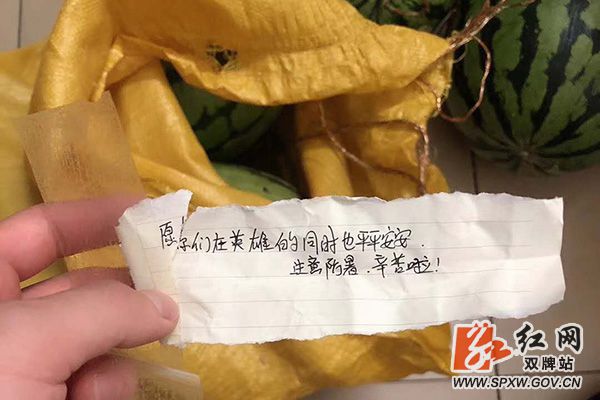 愿你们在英雄的同时也平平安安.
注意防暑.辛苦啦!
红网
双牌站
WWW.SPXW.GOV.CN